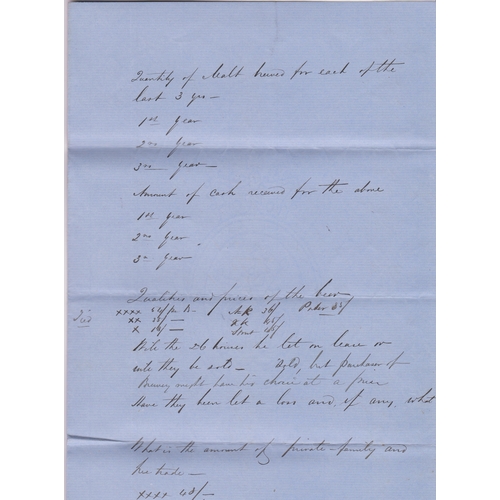 Quantity of Malt brewed for each of the
last 3 yrs —
1st Year
2nd Year
3rd Year —
Amount of cash received for the above
1st Year
2nd Year
3rd Year
Qualities and prices of the beer
xxxx
xx
x
Will the 26 houses be let on lease or
will they be sold — Sold, but purchaser of
Brewery might have his choice at a price
Have they been let a loss and, if any, what
What is the amount of private family and
free trade —
xxxx 63/—